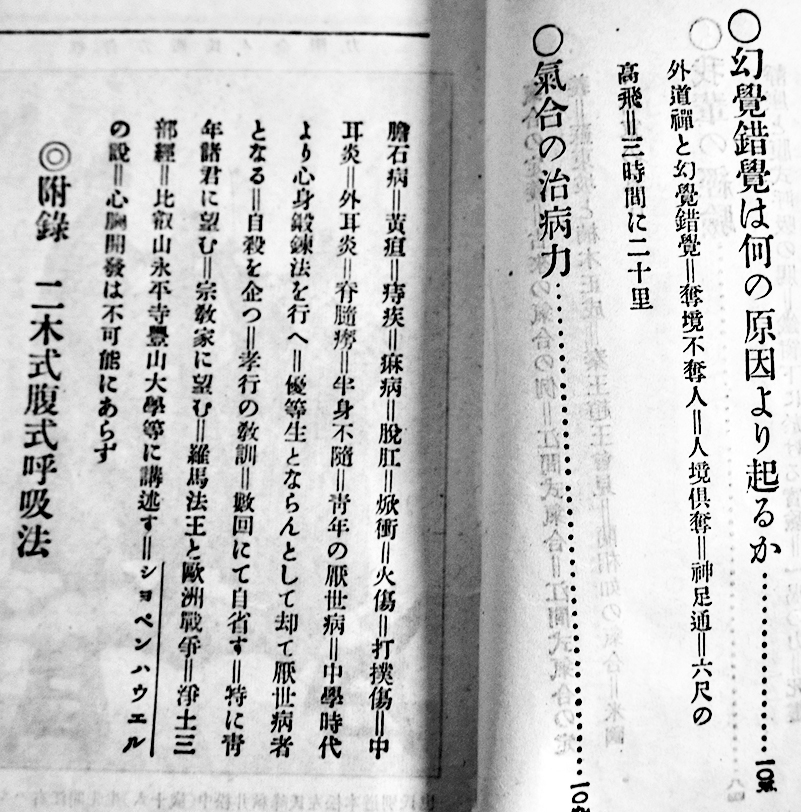 ○幻覺錯覺は何の原因より起るか…………一〇
外道禪と幻覺錯覺＝奪境不奪人＝人境俱奪＝神足通＝六尺の
高飛＝三時間に二十里
○氣合の治病力…………一〇
膽石病＝黃疸＝痔疾＝痳病＝脫肛＝焮衝＝火傷＝打撲傷＝中
耳炎＝外耳炎＝脊髓癆＝半身不隨＝靑年の厭世病＝中學時代
より心身鍛鍊法を行へ＝優等生とならんとして却て厭世病者
となる＝自殺を企つ＝孝行の敎訓＝數回にて自省す＝特に靑
年諸君に望む＝宗敎家に望む＝羅馬法王と歐洲戰爭＝淨土三
部經＝比叡山永平寺豐山大學等に講述す＝シヨペンハウエル
の說＝心胸開發は不可能にあらず
◎附錄　二木式腹式呼吸法